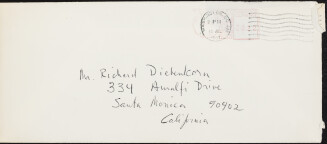 Mr. Richard Diebenkorn
334 Amalfi Drive
Santa Monica 90402
California